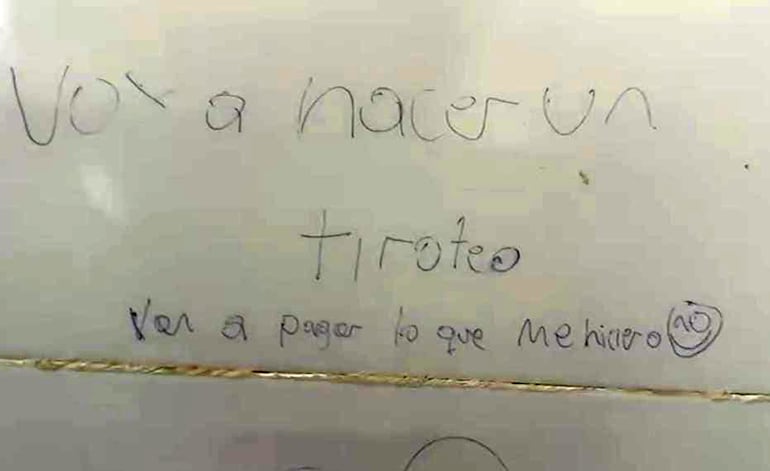 Voy a hacer un
tiroteo
Van a pagar lo que me hiciero no